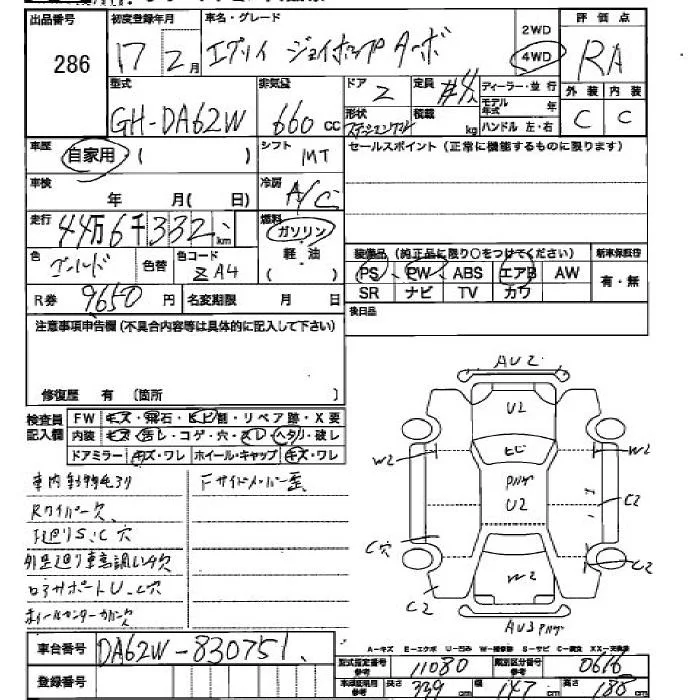 出品番号 初度登録年月 車名・グレード 2WD 4WD 評価点
286 17 2月 エブリイ ジョイポップターボ RA
型式 排気量 ドア 定員 ディーラー・並行 外装 内装
GH-DA62W 660 cc 2 4人 モデル年式 年 C C
形状 積載 kg ハンドル 左・右
車歴 自家用 ( ) シフト MT セールスポイント (正常に機能するものに限ります)
車検 年 月( 日) 冷房 A/C
走行 44万6千332 km 燃料 ガソリン
軽油 ( )
色 ゴールド 色替 色コード ZA4
装備品 (純正品に限り○をつけてください) 新車保証書
PS PW ABS エアB AW 有・無
SR ナビ TV カワ
R券 9650円 名変期限 月 日 後日品
注意事項申告欄(不具合内容等は具体的に記入して下さい)
修復歴 有 (箇所 )
検査員記入欄 FW キズ・飛石・ヒビ割・リペア跡・X要
内装 キズ・汚レ・コゲ・穴・スレ・ヘタリ・破レ
ドアミラー キズ・ワレ ホイール・キャップ キズ・ワレ
Rワイパー欠
下廻りS、C穴
ロアサポートU、C穴
Fサイドメンバー歪
AU2
U2
W2 ヒビ W2
U2 C2
C穴
C2 W2 C2
AU3
車台番号 DA62W-830751
登録番号
A-キズ E-エクボ U-凹み W-補修跡 S-サビ C-腐食 XX-交換済
型式指定番号 参考 11080 類別区分番号 参考 0616
車体寸法 参考 長さ 339 cm 幅 147 cm 高さ 188 cm